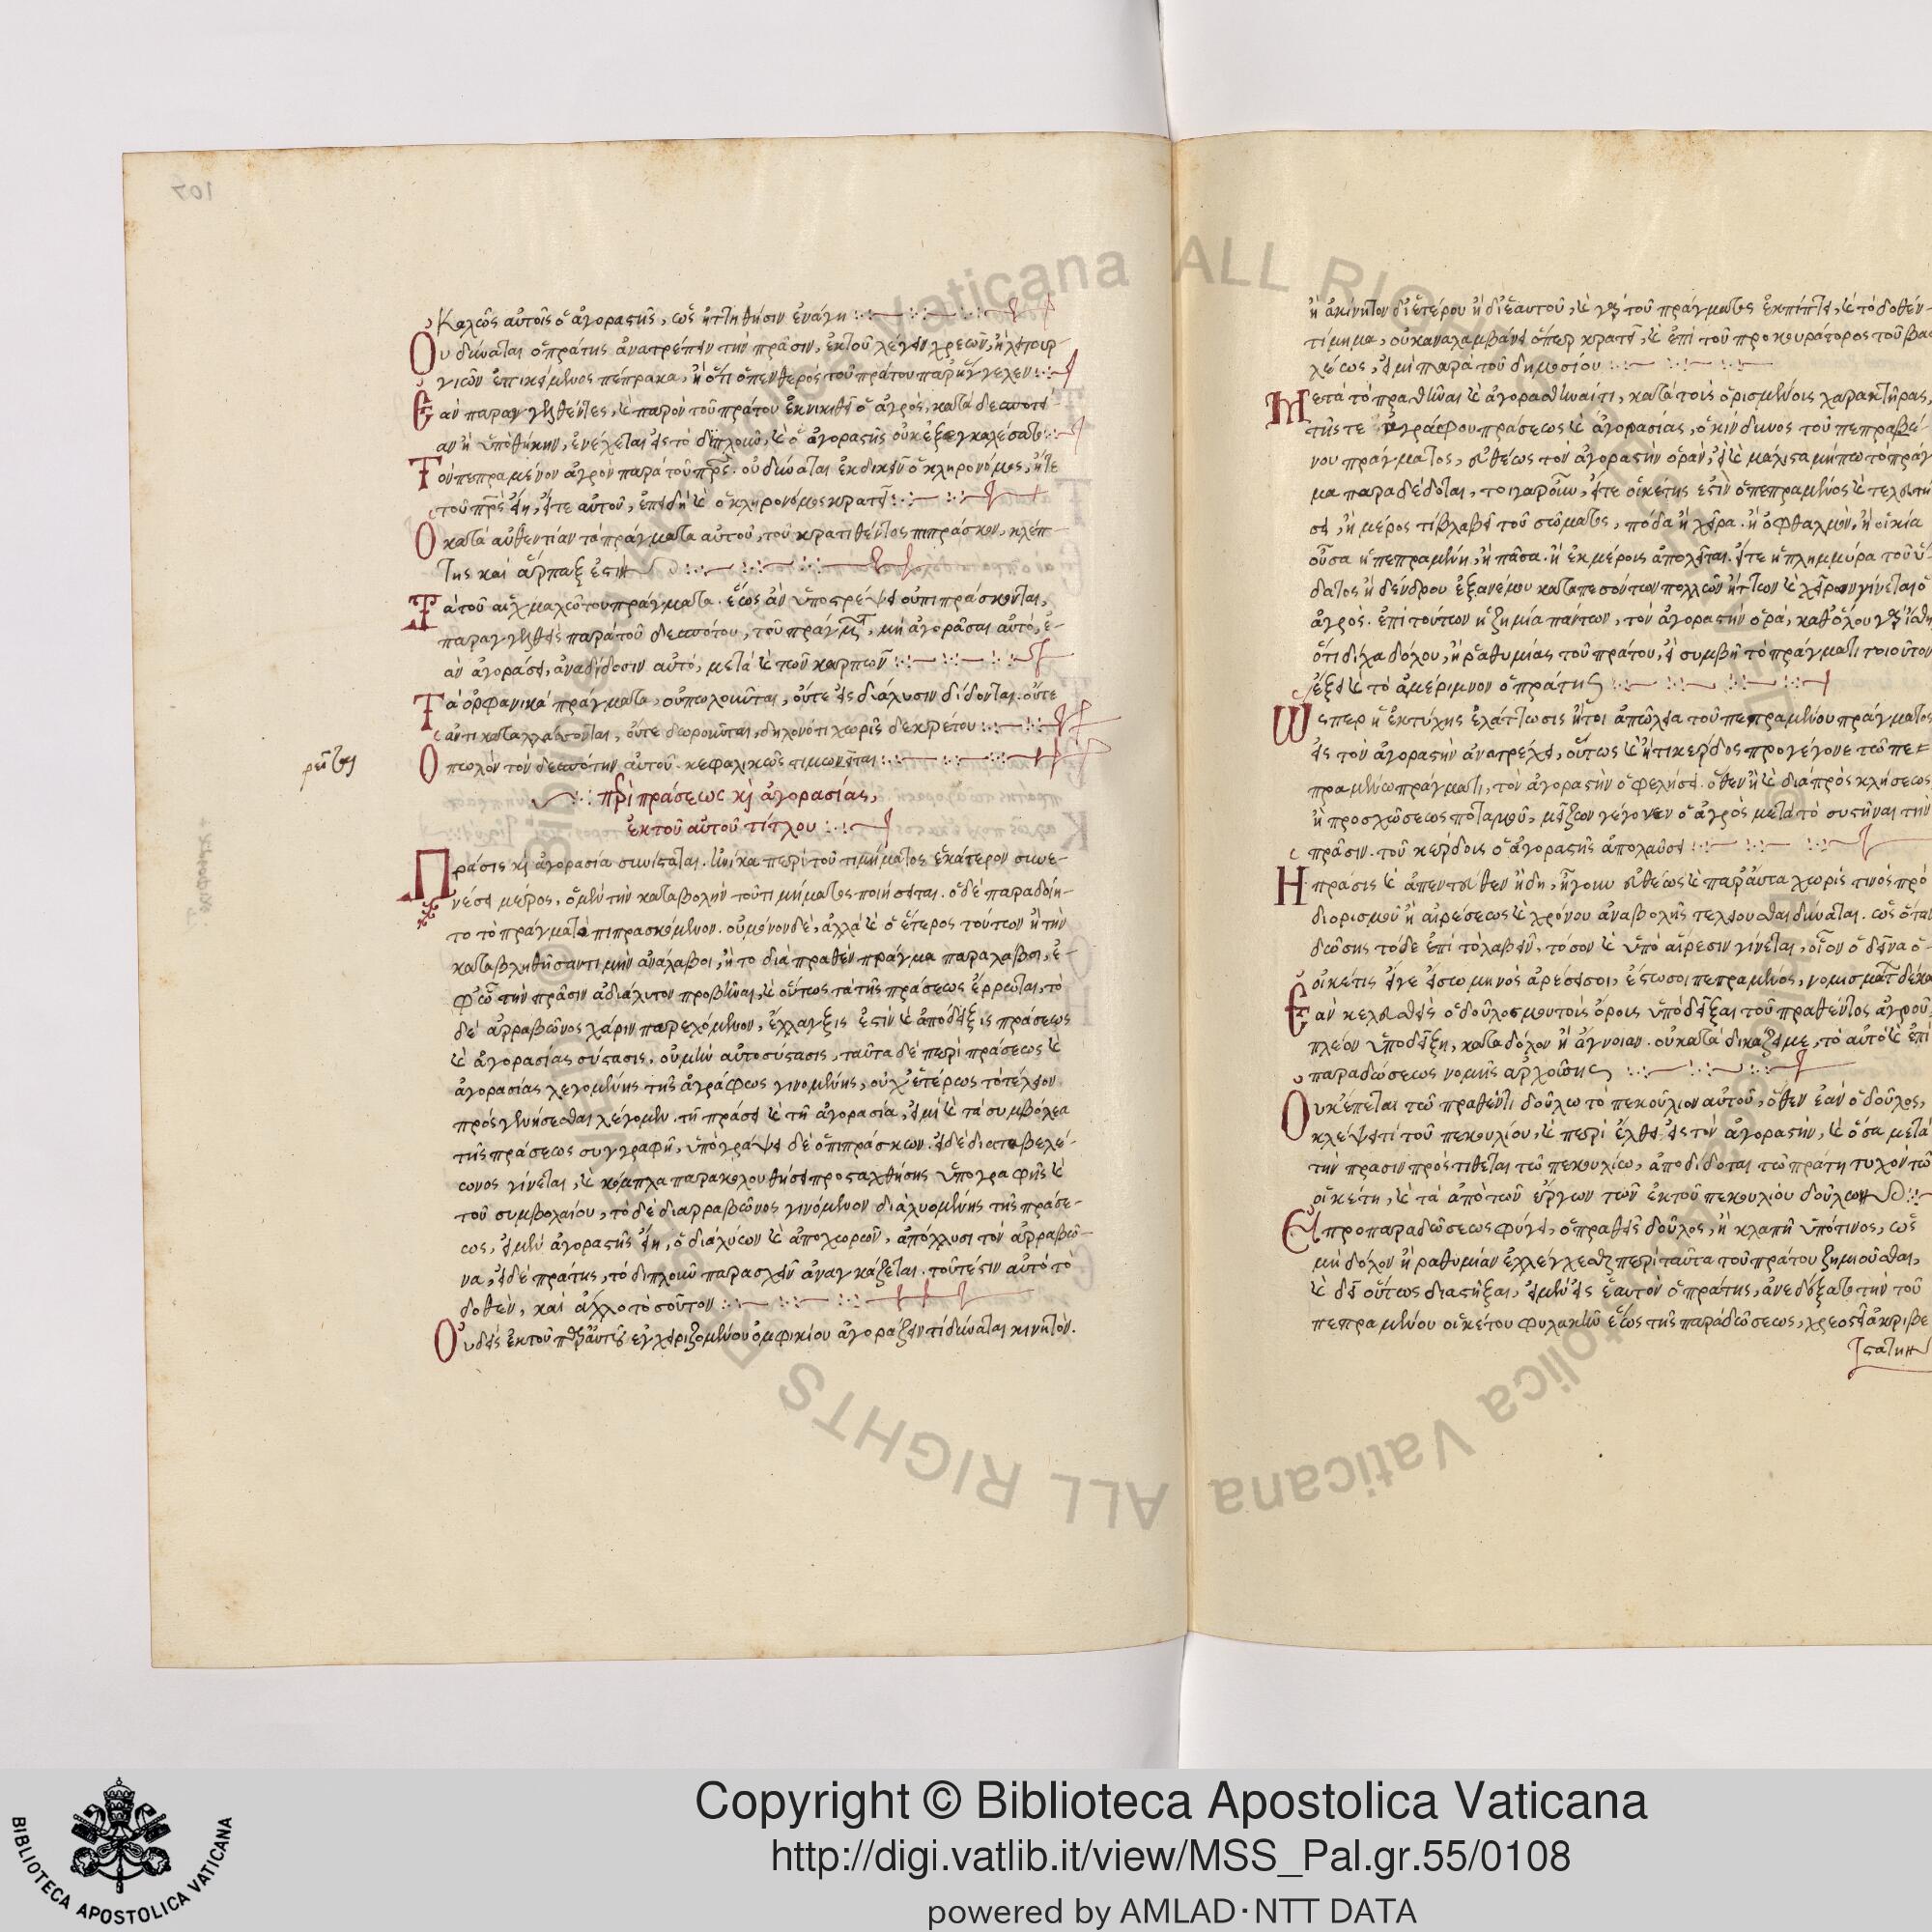 καλῶς αὐτοῖς ὁ ἀγοραστὴς, ὡς ἡττηθῆσιν ἐνάγη
Οὐ δύναται ὁ πράτης ἀνατρέπειν τὴν πρᾶσιν, ἐκ τοῦ λέγειν χρεῶν, ἢ λειτουρ-
γιῶν ἐπικείμενος πέπρακα, ἢ ὅτι ὁ πενθερός τοῦ πράτου παρήγγελεν
Ἐὰν παραγγελθέντες, καὶ παρὸν τοῦ πράτου ἐκνικηθῇ ὁ ἀγρός, κατὰ δεσποτεί-
αν ἢ ὑποθήκην, ἐνέχεται εἰς τὸ διπλοῦν, καὶ ὁ ἀγοραστὴς οὐκ ἐξεγκαλέσατο
Τὸν πεπραμένον ἀγρὸν παρὰ τοῦ πρς. οὐ δύναται ἐκδικεῖν ὁ κληρονόμος, ἤτε
τοῦ πρς εἴη, εἴτε αὐτοῦ, ἐπειδὴ καὶ ὁ κληρονόμος κρατεῖ
Ὁ κατὰ αὐθεντίαν τὰ πράγματα αὐτοῦ, τοῦ κρατιθέντος πιπράσκων, κλέπ-
της καὶ ἅρπαξ ἐστὶν
Τὰ τοῦ αἰχμαλώτου πράγματα. ἕως ἂν ὑποστρέψει οὐ πιπράσκονται,
παραγγελθεὶς παρὰ τοῦ δεσπότου, τοῦ πράγματ, μὴ ἀγορᾶσαι αὐτό, ἐ-
ὰν ἀγοράσει, ἀναδίδοσιν αὐτό, μετὰ καὶ τῶν καρπῶν
Τὰ ὀρφανικὰ πράγματα, οὐ πωλοῦνται, οὔτε εἰς διάλυσιν δίδονται. οὔτε
ἀντικαταλλάττονται, οὔτε δωροῦνται, δηλονότι χωρὶς δεκρέτου
Ὁ πωλὸν τὸν δεσπότην αὐτοῦ. κεφαλικῶς τιμωρεῖται
περὶ πράσεως καὶ ἀγορασίας,
ἐκ τοῦ αὐτοῦ τίτλου
Πρᾶσις καὶ ἀγορασία συνίσταται. ἡνίκα περὶ τοῦ τιμήματος ἑκάτερον συνε-
νέσει μέρος, ὁ μὲν τὴν καταβολὴν τοῦ τιμήματος ποιήσεται. ὁ δὲ παραδοίη-
το τὸ πράγμα τὸ πιπρασκόμενον. οὐ μόνον δὲ, ἀλλὰ καὶ ὁ ἕτερος τούτων ἢ τὴν
καταβληθῆσαν τιμὴν ἀναλάβοι, ἢ το διαπραθὲν πράγμα παραλάβοι, ἐ-
φ' ᾧ τὴν πρᾶσιν ἀδιάλυτον προβῆναι, καὶ οὕτως τὰ τῆς πράσεως ἔρρωται, τὸ
δὲ ἀρραβῶνος χάριν παρεχόμενον, ἔλλαγξις ἐστὶν καὶ ἀπόδειξις πράσεως
καὶ ἀγορασίας σύστασις, οὐ μὴν αὐτοσύστασις, ταῦτα δὲ περὶ πράσεως καὶ
ἀγορασίας λεγομένης τῆς ἀγράφως γινομένης, οὐχ' ἑτέρως τὸ τέλειον
προσγενήσεσθαι λέγομεν. τῇ πράσει καὶ τῇ ἀγορασία, εἰ μὴ καὶ τὰ συμβόλεα
τῆς πράσεως συγγραφῇ, ὑπογράψει δὲ ὁ πιπράσκων. εἰ δὲ δια ταβελί-
ωνος γίνεται, καὶ κόμπλα παρακολουθήσει προσταχθήσης ὑπογραφῆς καὶ
τοῦ συμβολαίου, τὸ δὲ δι ἀρραβῶνος γινόμενον διαλυομένης τῆς πράσε-
ως, εἰ μὲν ἀγοραστὴς εἴη, ὁ διαλύων καὶ ἀποχωρῶν, ἀπόλλυσι τὸν ἀρραβῶ-
να, εἰ δὲ πράτης, τὸ διπλοῦν παρασχεῖν ἀναγκάζεται. τουτέστιν αὐτό τὸ
δοθὲν, καὶ ἄλλο τοσοῦτον
Οὐδεὶς ἐκ τοῦ ἐγχειριζομένου ὀμφικίου ἀγοράζειν τί δύναται κινητὸν.
ἢ ἀκίνητον δι' ἑτέρου ἢ δι' ἑαυτοῦ, καὶ γὰρ τοῦ πράγματος ἐκπίπτει, καὶ τὸ δοθέν-
τίμημα, οὐκ ἀναλαμβάνει ὅπερ κρατεῖ, καὶ ἐπὶ τοῦ προκουράτορος τοῦ βα
λέως, εἰ μὴ παρὰ τοῦ δημοσίου
Μετὰ τὸ πραθῆναι καὶ ἀγορασθῆναί τι, κατὰ τοὺς ὁρισμένους χαρακτῆρας,
τῆς τε ἀγράφου πράσεως καὶ ἀγορασίας, ὁ κίνδυνος τοῦ πεπραμέ-
νου πράγματος, εὐθέως τὸν ἀγοραστὴν ὁρᾶν, εἰ καὶ μάλιστα μήπω τὸ πράγ
μα παραδέδοται, τοιγαροῦν, εἴτε οἰκέτης ἐστὶν ὁ πεπραμένος καὶ τελευτή
σει, ἢ μέρος τί βλαβεῖ τοῦ σώματος, πόδα ἢ χεῖρα. ἢ ὀφθαλμὸν, ἢ οἰκία
οὖσα ἡ πεπραμένη, ἢ πᾶσα. ἢ ἐκ μέρους ἀπολεῖται. εἴτε ἡ πλημμύρα τοῦ ὕ-
δατος ἢ δένδρου ἐξ ἀνέμου καταπεσόντων πολλῶν ἥττων καὶ χεῖρων γίνεται ὁ
ἀγρός. ἐπὶ τούτων ἡ ζημία πάντων, τὸν ἀγοραστὴν ὁρᾷ, καθόλου γὰρ
ὅτι δίχα δόλου, ἢ ῥαθυμίας τοῦ πράτου, εἰ συμβῇ τὸ πράγματι τοιοῦτον
ἕξει καὶ τὸ ἀμέριμνον ὁ πράτης
Ὥσπερ ἡ ἐκ τύχης ἐλάττωσις ἤτοι ἀπώλεια τοῦ πεπραμένου πράγματος
εἰς τὸν ἀγοραστὴν ἀνατρέχει, οὕτως καὶ ἥτι κέρδος προγέγονε τῶ πε-
πραμένω πράγματι, τὸν ἀγοραστὴν ὀφελήσει. ὅθεν ἢ καὶ διὰ προσκλήσεως
ἢ προσχώσεως ποταμοῦ, μείζων γέγονεν ὁ ἀγρὸς μετὰ τὸ συστῆναι τὴν
πρᾶσιν. τοῦ κέρδους ὁ ἀγοραστὴς ἀπολαύσει
Ἡ πρᾶσις καὶ ἀπεντεῦθεν ἤδη, ἤγουν εὐθέως καὶ παρ' αὐτα χωρίς τινός προ
διορισμοῦ ἢ αἱρέσεως καὶ χρόνου ἀναβολῆς τελειοῦσθαι δύναται. ὡς ὅταν
δώσης τόδε ἐπὶ τὸ λαβεῖν, τόσον καὶ ὑπὸ αἵρεσιν γίνεται, οἷον ὁ δεῖνα ὁ-
οἰκέτις εἴγε εἴσω μηνὸς ἀρέσει σοι, ἔστω σοι πεπραμένος, νομισμάτ δέκα
Ἐὰν κελευσθεὶς ὁ δοῦλός μου τοὺς ὅρους ὑποδεῖξαι τοῦ πραθέντος ἀγροῦ,
πλέον ὑποδείξη, κατὰ δόλον ἢ ἄγνοιαν. οὐ καταδικάζει με, τὸ αὐτό καὶ ἐπὶ
παραδώσεως νομῆς ἀρχούσης
Οὐκ ἕπεται τῶ πραθέντι δούλω τὸ πεκούλιον αὐτοῦ, ὅθεν ἐὰν ὁ δοῦλος,
κλέψει τί τοῦ πεκουλίου, καὶ περὶ ἔλθει εἰς τὸν ἀγοραστὴν, καὶ ὅσα μετὰ
τὴν πρασιν προστίθεται τῶ πεκουλίω, ἀποδίδοται τῶ πράτη τυχὸν τῶ
οἰκέτη, καὶ τὰ ἀπὸ τῶν ἔργων τῶν ἐκ τοῦ πεκουλίου δούλων
Εἰ προ παραδώσεως φύγει, ὁ πραθεὶς δοῦλος, ἢ κλαπῇ ὑπό τινος, ὡς
μὴ δόλον ἢ ραθυμίαν ἐλλέγχεσθαι περὶ ταῦτα τοῦ πράτου ζημιοῦσθαι,
καὶ δεῖ οὕτως διατῆξαι, εἰ μὲν εἰς ἑαυτὸν ὁ πράτης, ἀνεδέξατο τὴν τοῦ
πεπραμένου οἰκέτου φυλακὴν ἕως τῆς παραδώσεως, χρεοστεῖ ἀκριβε
στάτην
Copyright © Biblioteca Apostolica Vaticana
http://digi.vatlib.it/view/MSS_Pal.gr.55/0108
powered by AMLAD·NTT DATA
BIBLIOTECA APOSTOLICA VATICANA